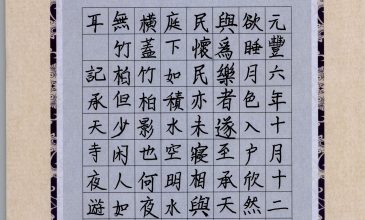 元豐六年十月十二
欲睡月色入户欣然
與為樂者遂至承天
民懷民亦未寢相與
庭下如積水空明水
橫蓋竹柏影也何夜
無竹柏但少闲人如
耳 記承天寺夜遊